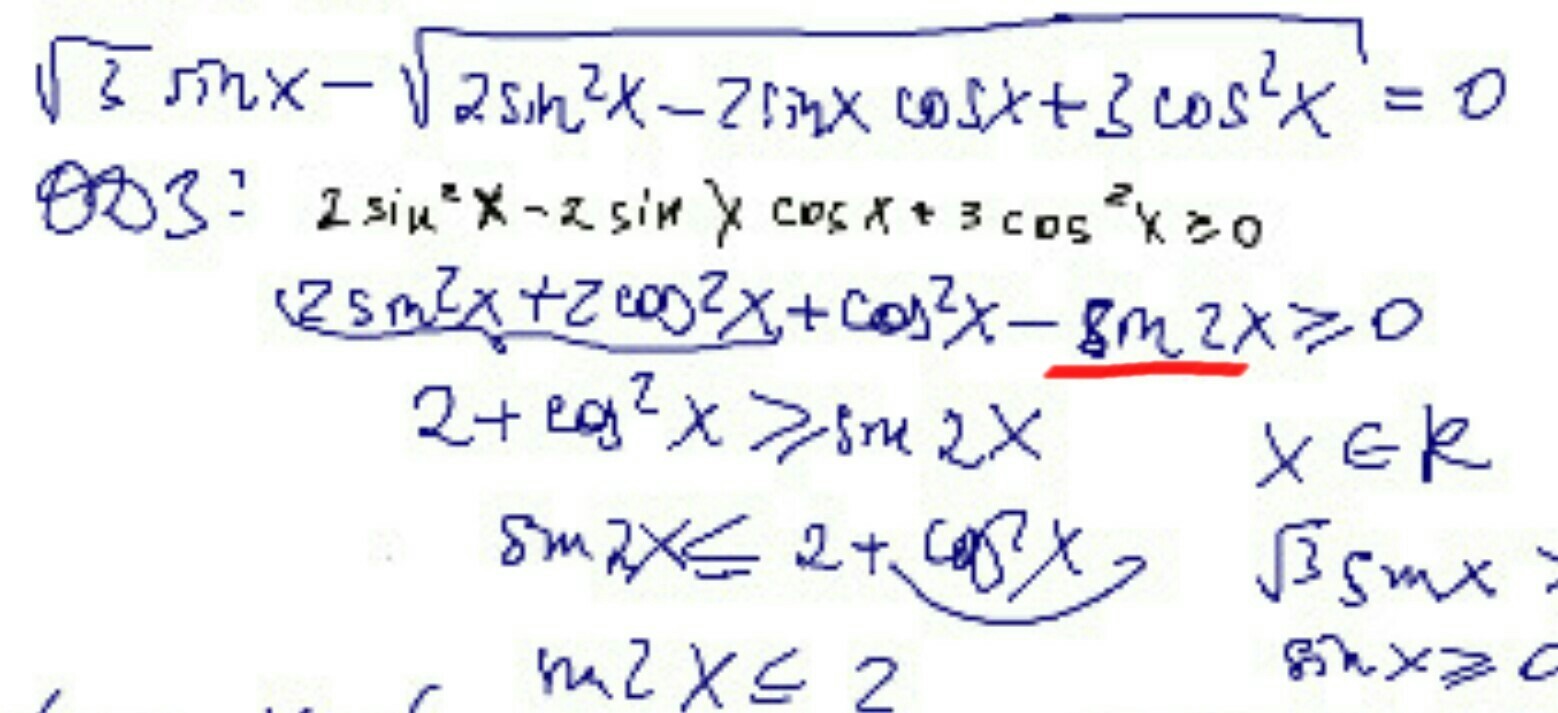 √3 sinx - √(2sin²x - 2sinx cosx + 3cos²x) = 0
ОДЗ: 2sin²x - 2sinx cosx + 3cos²x ≥ 0
2sin²x + 2cos²x + cos²x - sin2x ≥ 0
2 + cos²x ≥ sin2x x ∈ R
sin2x ≤ 2 + cos²x √3 sinx ≥
sin2x ≤ 2 sinx ≥ 0